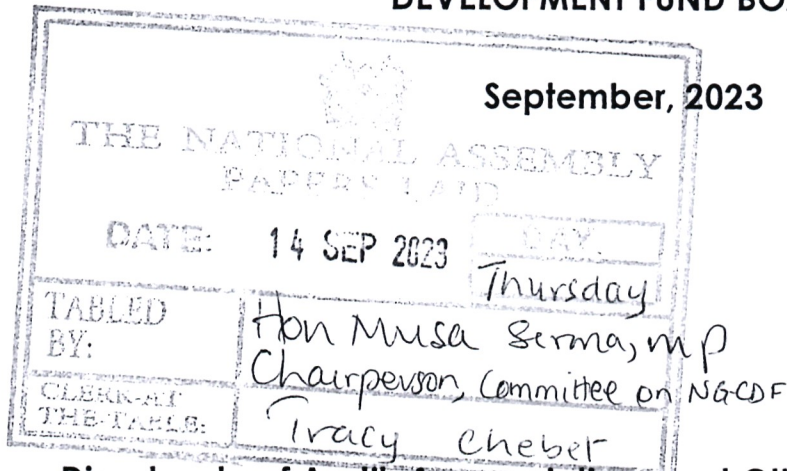 DEVELOPMENT FUND BO
September, 2023
THE NATIONAL ASSEMBLY
PAPERS LAID
DATE: 14 SEP 2023 DAY:
Thursday
TABLED BY: Hon Musa Serma, MP
Chairperson, Committee on NG-CDF
CLERK-AT THE-TABLE: Tracy Chebet